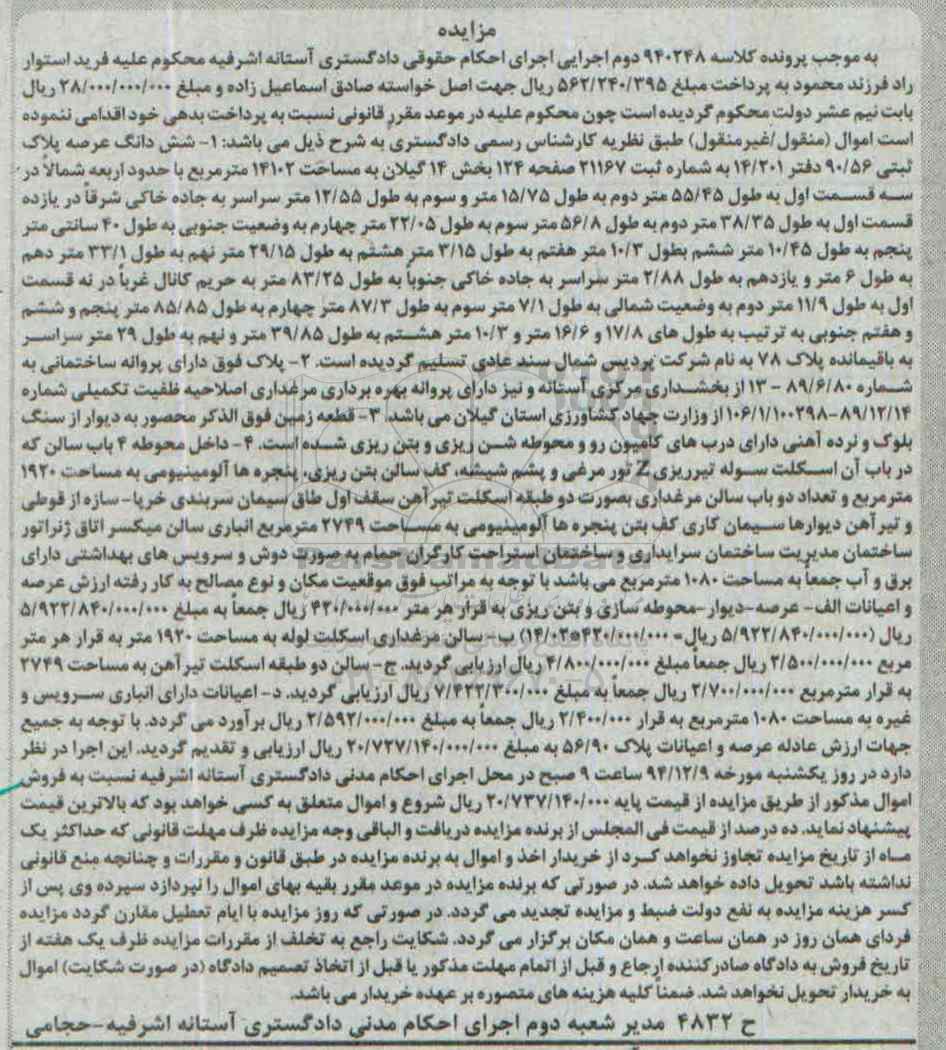 مزایده
به موجب پرونده کلاسه ۹۴۰۲۴۸ دوم اجرایی اجرای احکام حقوقی دادگستری آستانه اشرفیه محکوم علیه فرید استوار
راد فرزند محمود به پرداخت مبلغ ۵۶۲/۲۴۰/۳۹۵ ریال جهت اصل خواسته صادق اسماعیل زاده و مبلغ ۲۸/۰۰۰/۰۰۰/۰۰۰ ریال
بابت نیم عشر دولت محکوم گردیده است چون محکوم علیه در موعد مقرر قانونی نسبت به پرداخت بدهی خود اقدامی ننموده
است اموال (منقول/غیرمنقول) طبق نظریه کارشناس رسمی دادگستری به شرح ذیل می باشد: ۱- شش دانگ عرصه پلاک
ثبتی ۹۰/۵۶ دفتر ۱۴/۲۰۱ به شماره ثبت ۲۱۱۶۷ صفحه ۱۲۴ بخش ۱۴ گیلان به مساحت ۱۴۱۰۲ مترمربع با حدود اربعه شمالاً در
سه قسمت اول به طول ۵۵/۴۵ متر دوم به طول ۱۵/۷۵ متر و سوم به طول ۱۲/۵۵ متر سراسر به جاده خاکی شرقاً در یازده
قسمت اول به طول ۳۸/۳۵ متر دوم به طول ۵۶/۸ متر سوم به طول ۲۲/۰۵ متر چهارم به وضعیت جنوبی به طول ۴۰ سانتی متر
پنجم به طول ۱۰/۴۵ متر ششم بطول ۱۰/۳ متر هفتم به طول ۳/۱۵ متر هشتم به طول ۲۹/۱۵ متر نهم به طول ۳۳/۱ متر دهم
به طول ۶ متر و یازدهم به طول ۲/۸۸ متر سراسر به جاده خاکی جنوباً به طول ۸۳/۲۵ متر به حریم کانال غرباً در نه قسمت
اول به طول ۱۱/۹ متر دوم به وضعیت شمالی به طول ۷/۱ متر سوم به طول ۸۷/۳ متر چهارم به طول ۸۵/۸۵ متر پنجم و ششم
و هفتم جنوبی به ترتیب به طول های ۱۷/۸ و ۱۶/۶ متر و ۱۰/۳ متر هشتم به طول ۳۹/۸۵ متر و نهم به طول ۲۹ متر سراسر
به باقیمانده پلاک ۷۸ به نام شرکت پردیس شمال سند عادی تسلیم گردیده است. ۲- پلاک فوق دارای پروانه ساختمانی به
شماره ۸۹/۶/۸۰ - ۱۳ از بخشداری مرکزی آستانه و نیز دارای پروانه بهره برداری مرغداری اصلاحیه ظفیت تکمیلی شماره
۱۰۶/۱/۱۰۰۲۹۸-۸۹/۱۲/۱۴ از وزارت جهاد کشاورزی استان گیلان می باشد. ۳- قطعه زمین فوق الذکر محصور به دیوار از سنگ
بلوک و نرده آهنی دارای درب های کامیون رو و محوطه شن ریزی و بتن ریزی شده است. ۴- داخل محوطه ۴ باب سالن که
در باب آن اسکلت سوله تیرریزی Z تور مرغی و پشم شیشه، کف سالن بتن ریزی، پنجره ها آلومینیومی به مساحت ۱۹۲۰
مترمربع و تعداد دو باب سالن مرغداری بصورت دو طبقه اسکلت تیرآهن سقف اول طاق سیمان سربندی خرپا- سازه از قوطی
و تیر آهن دیوارها سیمان کاری کف بتن پنجره ها آلومینیومی به مساحت ۲۷۴۹ مترمربع انباری سالن میکسر اتاق ژنراتور
ساختمان مدیریت ساختمان سرایداری و ساختمان استراحت کارگران حمام به صورت دوش و سرویس های بهداشتی دارای
برق و آب جمعاً به مساحت ۱۰۸۰ مترمربع می باشد با توجه به مراتب فوق موقعیت مکان و نوع مصالح به کار رفته ارزش عرصه
و اعیانات الف- عرصه-دیوار-محوطه سازی و بتن ریزی به قرار هر متر ۴۲۰/۰۰۰/۰۰۰ ریال جمعاً به مبلغ ۵/۹۲۲/۸۴۰/۰۰۰/۰۰۰
ریال (۵/۹۲۲/۸۴۰/۰۰۰/۰۰۰ ریال= ۴۲۰/۰۰۰/۰۰۰*۱۴/۰۲) ب- سالن مرغداری اسکلت لوله به مساحت ۱۹۲۰ متر به قرار هر متر
مربع ۲/۵۰۰/۰۰۰/۰۰۰ ریال جمعاً مبلغ ۴/۸۰۰/۰۰۰/۰۰۰ ریال ارزیابی گردید. ج- سالن دو طبقه اسکلت تیرآهن به مساحت ۲۷۴۹
به قرار مترمربع ۲/۷۰۰/۰۰۰/۰۰۰ ریال جمعاً به مبلغ ۷/۴۲۲/۳۰۰/۰۰۰ ریال ارزیابی گردید. د- اعیانات دارای انباری سرویس و
غیره به مساحت ۱۰۸۰ مترمربع به قرار ۲/۴۰۰/۰۰۰ ریال جمعاً به مبلغ ۲/۵۹۲/۰۰۰/۰۰۰ ریال برآورد می گردد. با توجه به جمیع
جهات ارزش عادله عرصه و اعیانات پلاک ۵۶/۹۰ به مبلغ ۲۰/۷۲۷/۱۴۰/۰۰۰/۰۰۰ ریال ارزیابی و تقدیم گردید. این اجرا در نظر
دارد در روز یکشنبه مورخه ۹۴/۱۲/۹ ساعت ۹ صبح در محل اجرای احکام مدنی دادگستری آستانه اشرفیه نسبت به فروش
اموال مذکور از طریق مزایده از قیمت پایه ۲۰/۷۳۷/۱۴۰/۰۰۰ ریال شروع و اموال متعلق به کسی خواهد بود که بالاترین قیمت
پیشنهاد نماید. ده درصد از قیمت فی المجلس از برنده مزایده دریافت و الباقی وجه مزایده ظرف مهلت قانونی که حداکثر یک
ماه از تاریخ مزایده تجاوز نخواهد کرد از خریدار اخذ و اموال به برنده مزایده در طبق قانون و مقررات و چنانچه منع قانونی
نداشته باشد تحویل داده خواهد شد. در صورتی که برنده مزایده در موعد مقرر بقیه بهای اموال را نپردازد سپرده وی پس از
کسر هزینه مزایده به نفع دولت ضبط و مزایده تجدید می گردد. در صورتی که روز مزایده با ایام تعطیل مقارن گردد مزایده
فردای همان روز در همان ساعت و همان مکان برگزار می گردد. شکایت راجع به تخلف از مقررات مزایده ظرف یک هفته از
تاریخ فروش به دادگاه صادرکننده ارجاع و قبل از اتمام مهلت مذکور یا قبل از اتخاذ تصمیم دادگاه (در صورت شکایت) اموال
به خریدار تحویل نخواهد شد. ضمناً کلیه هزینه های متصوره بر عهده خریدار می باشد.
ح ۴۸۳۲ مدیر شعبه دوم اجرای احکام مدنی دادگستری آستانه اشرفیه-حجامی